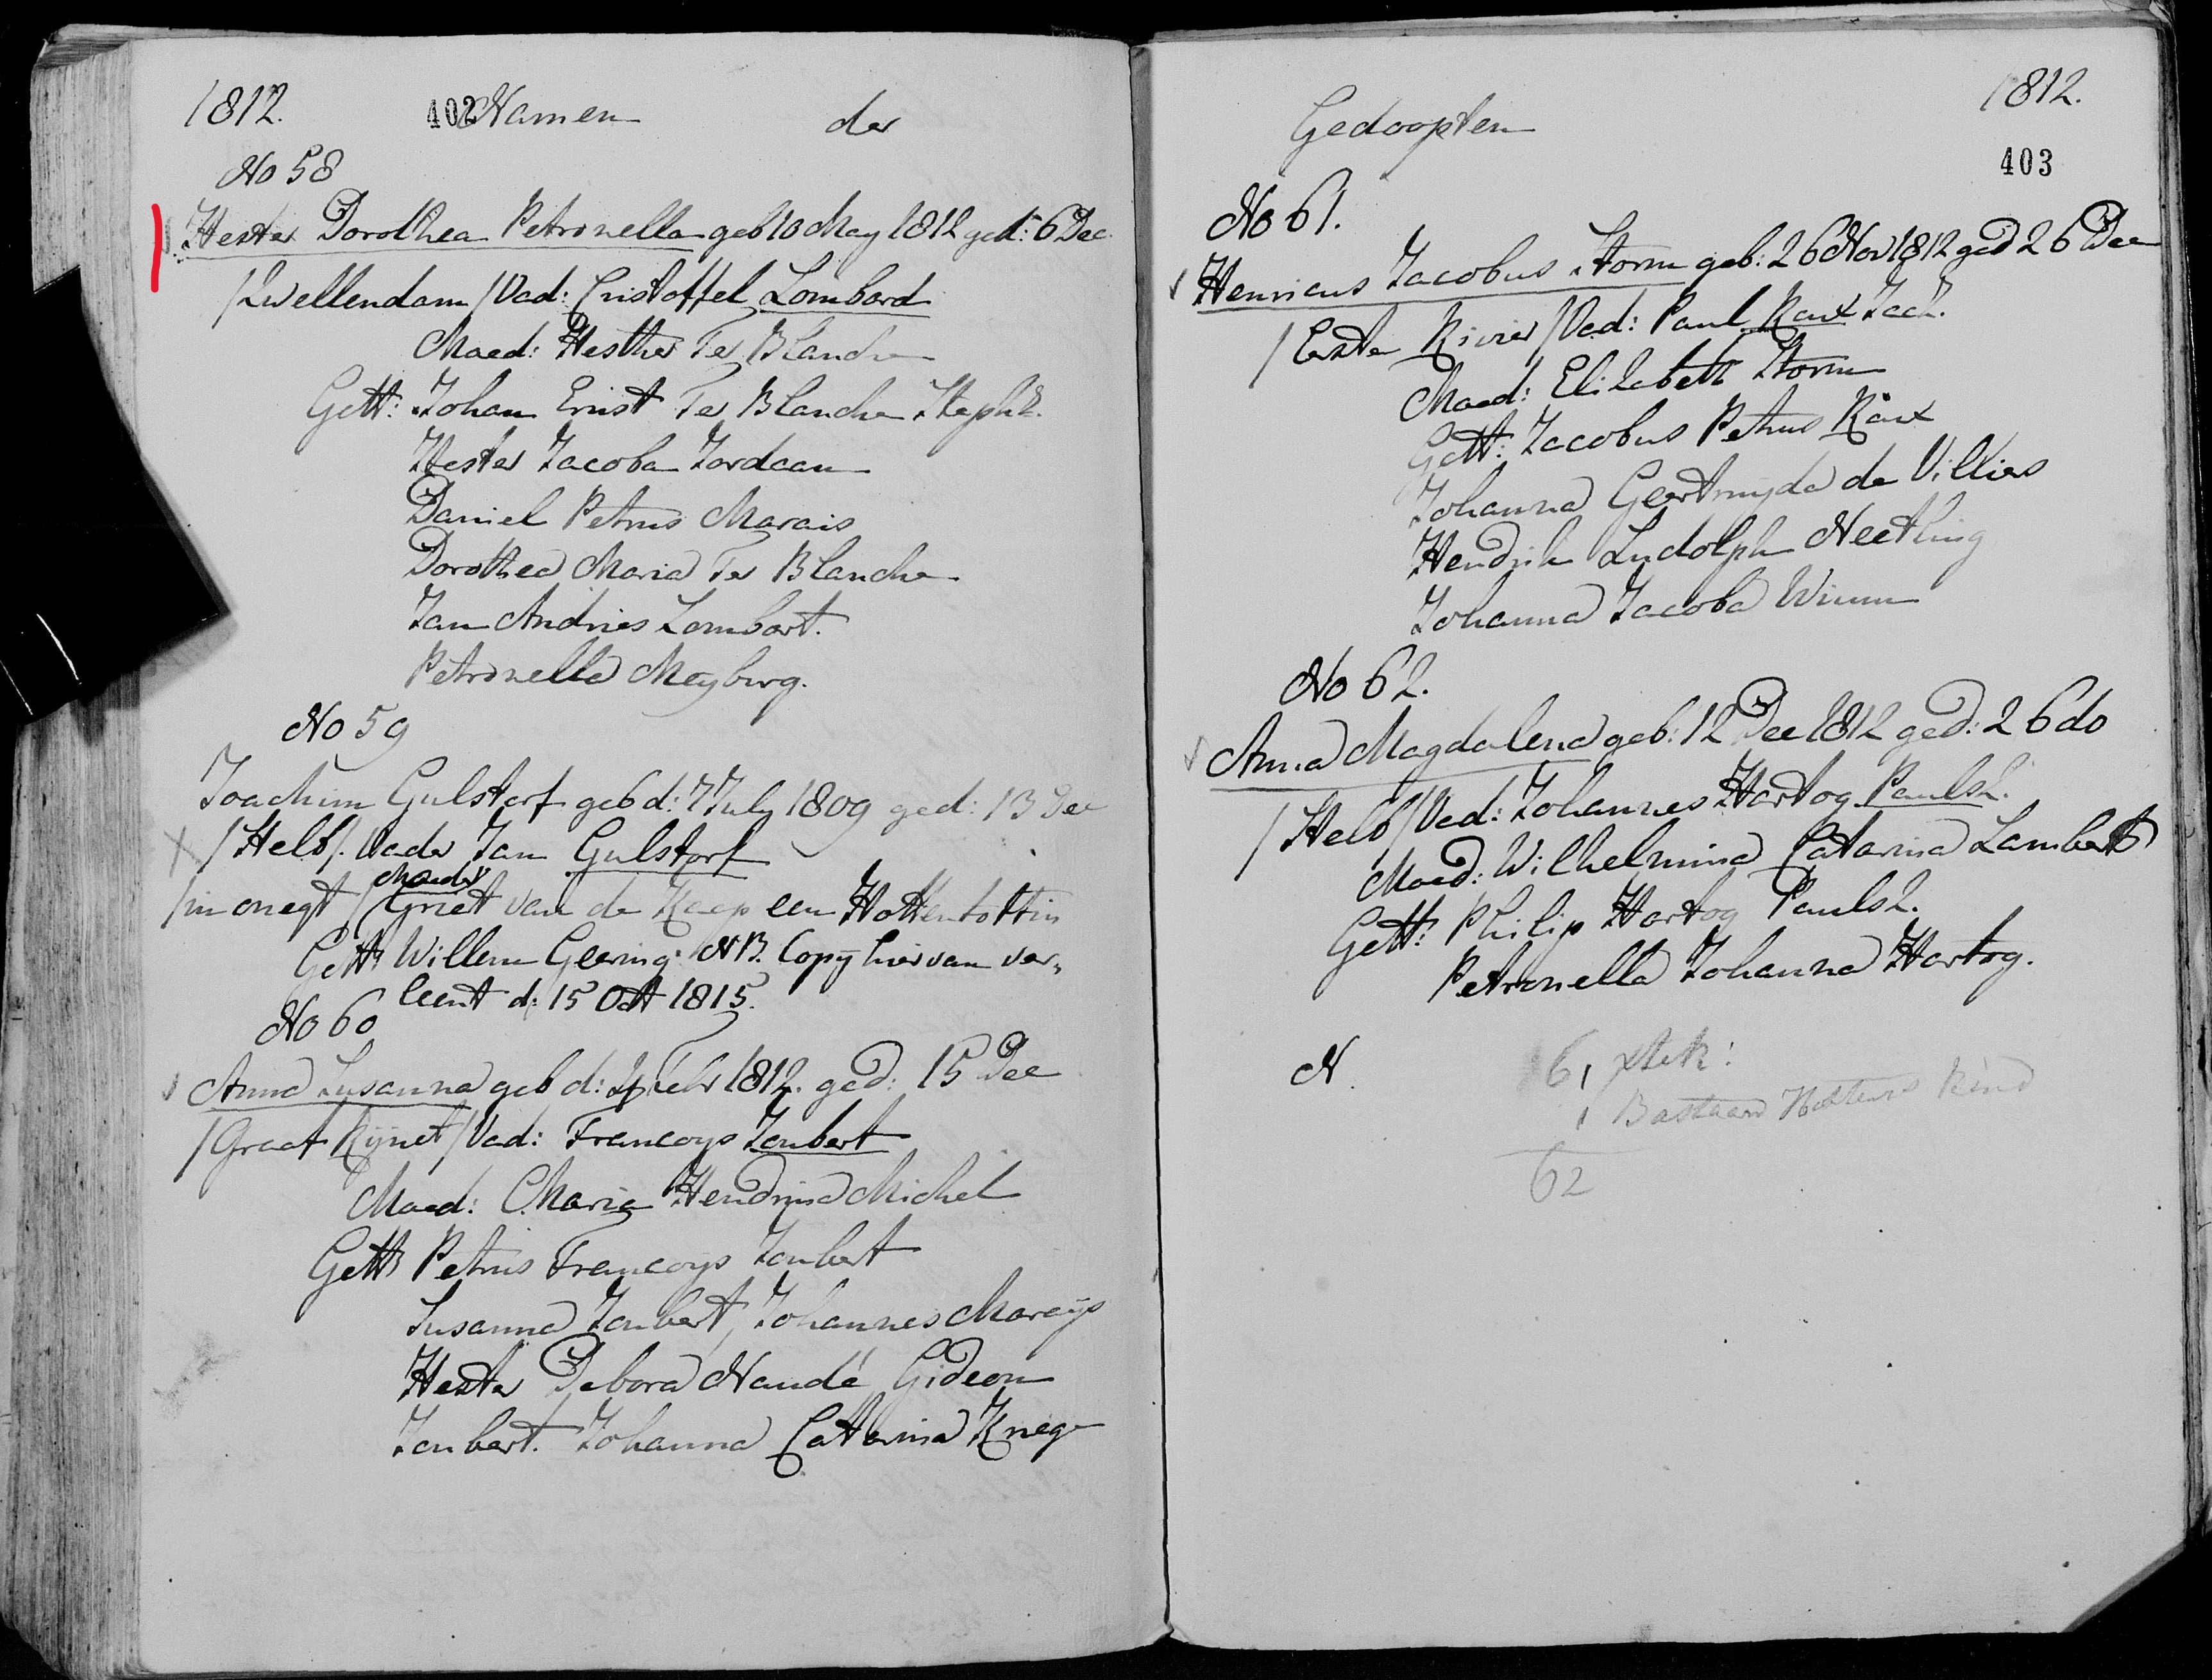 1812. 402 Namen der
No 58
Hester Dorothea Petronella geb 10 May 1812 ged: 6 Dec.
/Swellendam/ Vad: Cristoffel Lombard
Moed: Hesther Ter Blanche
Gett: Johan Ernst Ter Blanche Stephz.
Hester Jacoba Jordaan
Daniel Petrus Marais
Dorothea Maria Ter Blanche
Jan Andries Lombart.
Petronella Meyburg.
No 59
Joachim Gulstorf geb d: 7 July 1809 ged: 13 Dec
/Helb/. Vader Jan Gulstorf
/in onegt/ Moeder Griet van de Kaap een Hottentottin
Gett Willem Geering. NB. Copy hier van ver„
leent d: 15 Oct 1815.
No 60
Anna Susanna geb d: Febr 1812. ged: 15 Dec
/Graaf Rijnet/ Vad: Francoys Joubert
Moed: Maria Hendrina Michel
Gett Petrus Francoys Joubert
Susanna Joubert, Johannes Marays
Hester Debora Naudé Gideon
Joubert. Johanna Catarina Kriege
Gedoopten 1812.
403
No 61.
Henricus Jacobus Storm geb: 26 Nov 1812 ged 26 Dec
/Eerste Rivier/ Vad: Paul Roux Jac:z.
Moed: Elizabeth Storm
Gett: Jacobus Petrus Roux
Johanna Geertruyda de Villiers
Hendrik Ludolph Neethling
Johanna Jacoba Wium
No 62.
Anna Magdalena geb: 12 Dec 1812 ged: 26 do
/Helb/ Vad: Johannes Hartog Paulsz.
Moed: Wilhelmina Catarina Lamberts
Gett: Philip Hartog Paulsz.
Petronella Johanna Hartog.
N. 61
1 Bastaard Hottent Kind
62